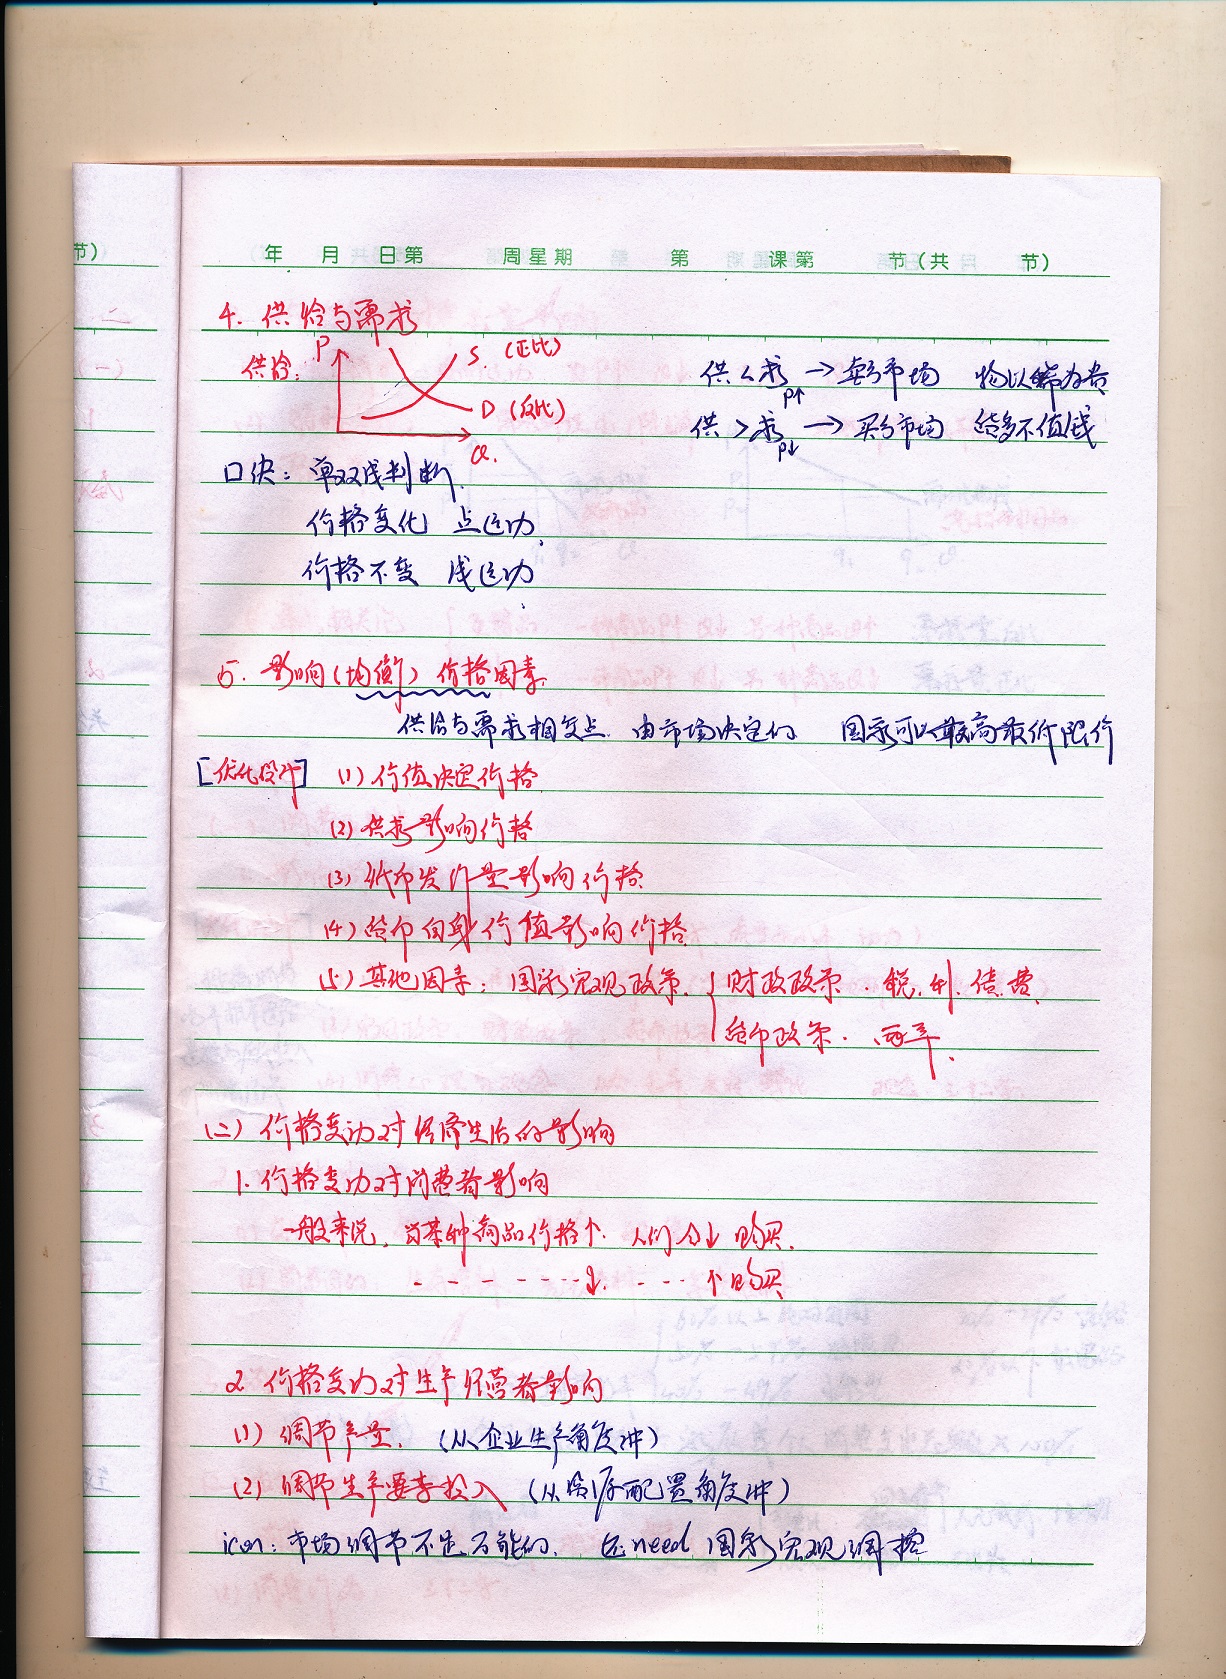 节)
年 月 日第 周星期 第 课第 节(共 节)
4. 供给与需求
供给: P S (正比)
D (反比)
Q.
供<求 P↑ → 卖方市场 物以稀为贵
供>求 P↓ → 买方市场 货多不值钱
口诀: 单双线判断.
价格变化 点运动,
价格不变 线运动
5. 影响(均衡) 价格因素.
供给与需求相交点. 由市场决定的 国家可以最高最低限价
[优化设计] (1) 价值决定价格.
(2) 供求影响价格
(3) 纸币发行量影响价格.
(4) 货币自身价值影响价格.
(5) 其他因素: 国家宏观政策. { 财政政策. 税. 利. 债. 费.
货币政策.
(二) 价格变动对经济生活的影响
1. 价格变动对消费者影响
一般来说, 当某种商品价格↑. 人们会↓ 购买.
. - - - - - - - ↓. - - - - ↑购买
2 价格变动对生产经营者影响
(1) 调节产量. (从企业生产角度讲)
(2) 调节生产要素投入 (从资源配置角度讲)
icon: 市场调节不是万能的. 还need 国家宏观调控